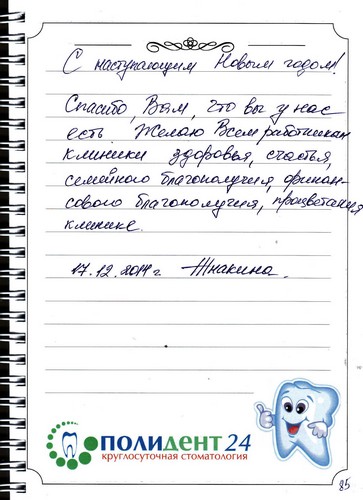 С наступающим Новым годом!
Спасибо, Вам, что вы у нас
есть. Желаю Всем работникам
клиники здоровья, счастья,
семейного благополучия, финан-
сового благополучия, процветания
клинике.
17.12.2014 г. Жнакина.
ПОЛИДЕНТ 24
круглосуточная стоматология
25